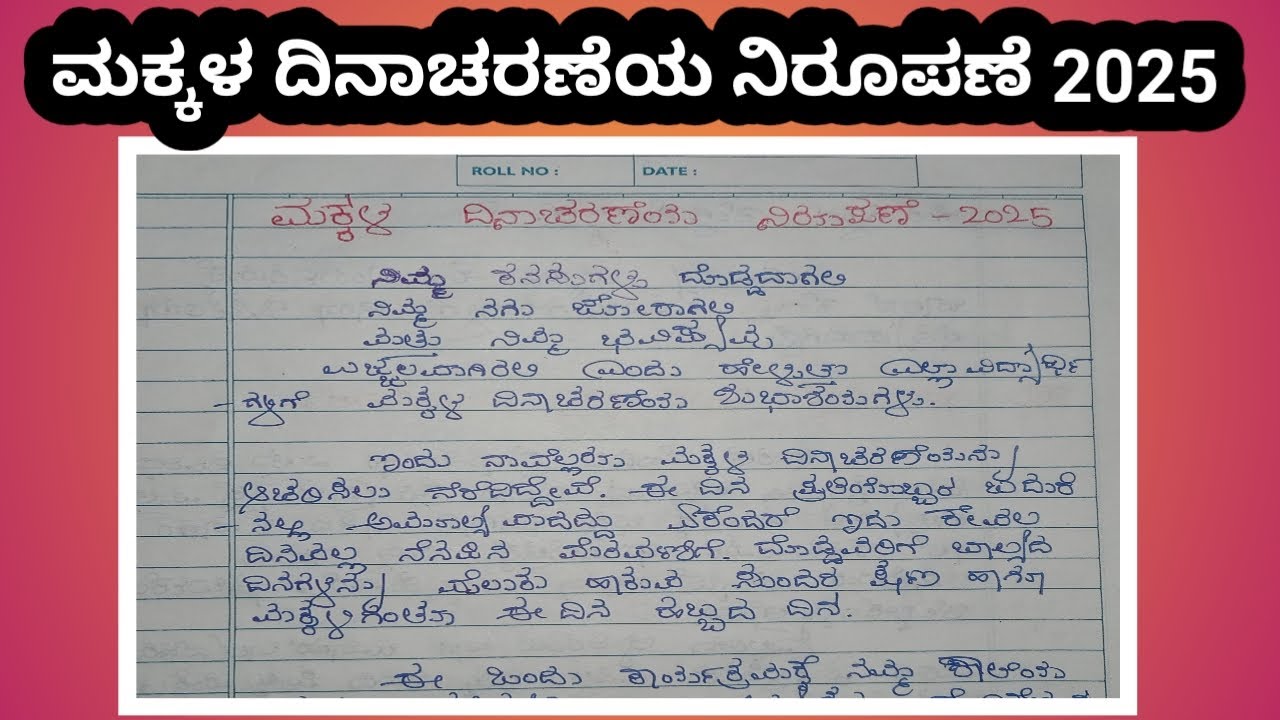 ಮಕ್ಕಳ ದಿನಾಚರಣೆಯ ನಿರೂಪಣೆ 2025
ROLL NO : DATE :
ಮಕ್ಕಳ ದಿನಾಚರಣೆಯ ನಿರೂಪಣೆ - 2025
ನಿಮ್ಮ ಕನಸುಗಳು ದೊಡ್ಡದಾಗಲಿ
ನಿಮ್ಮ ನಗು ಜೋರಾಗಲಿ
ಮತ್ತು ನಿಮ್ಮ ಭವಿಷ್ಯವು
ಉಜ್ವಲವಾಗಿರಲಿ ಎಂದು ಹೇಳುತ್ತಾ ಎಲ್ಲಾ ವಿದ್ಯಾರ್ಥಿ
- ಗಳಿಗೆ ಮಕ್ಕಳ ದಿನಾಚರಣೆಯ ಶುಭಾಶಯಗಳು.
ಇಂದು ನಾವೆಲ್ಲರೂ ಮಕ್ಕಳ ದಿನಾಚರಣೆಯನ್ನು
ಆಚರಿಸಲು ಸೇರಿದ್ದೇವೆ. ಈ ದಿನ ಪ್ರತಿಯೊಬ್ಬರ ಬದುಕಿ
- ನಲ್ಲೂ ಅಮೂಲ್ಯವಾದದ್ದು ಏಕೆಂದರೆ ಇದು ಕೇವಲ
ದಿನವಲ್ಲ ನೆನಪಿನ ಮೆರವಣಿಗೆ. ದೊಡ್ಡವರಿಗೆ ಬಾಲ್ಯದ
ದಿನಗಳನ್ನು ಮೆಲುಕು ಹಾಕುವ ಸುಂದರ ಕ್ಷಣ ಹಾಗೂ
ಮಕ್ಕಳಿಗಂತೂ ಈ ದಿನ ಹಬ್ಬದ ದಿನ.
ಈ ಒಂದು ಕಾರ್ಯಕ್ರಮಕ್ಕೆ ನಮ್ಮ ಶಾಲೆಯ